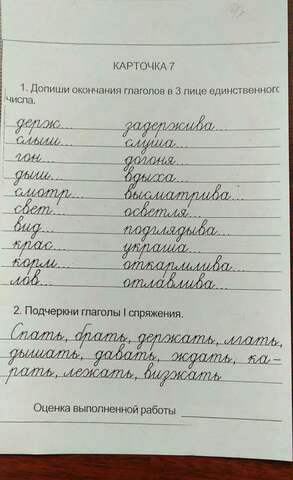 КАРТОЧКА 7
1. Допиши окончания глаголов в 3 лице единственного
числа.
держ... задержива...
слыш... слуша...
гон... догоня...
дыш... вдыха...
смотр... высматрива...
свет... осветля...
вид... подглядыва...
крас... украша...
корм... откармлива...
лов... отлавлива...
2. Подчеркни глаголы I спряжения.
Спать, брать, держать, лгать,
дышать, давать, ждать, ка-
рать, лежать, визжать
Оценка выполненной работы